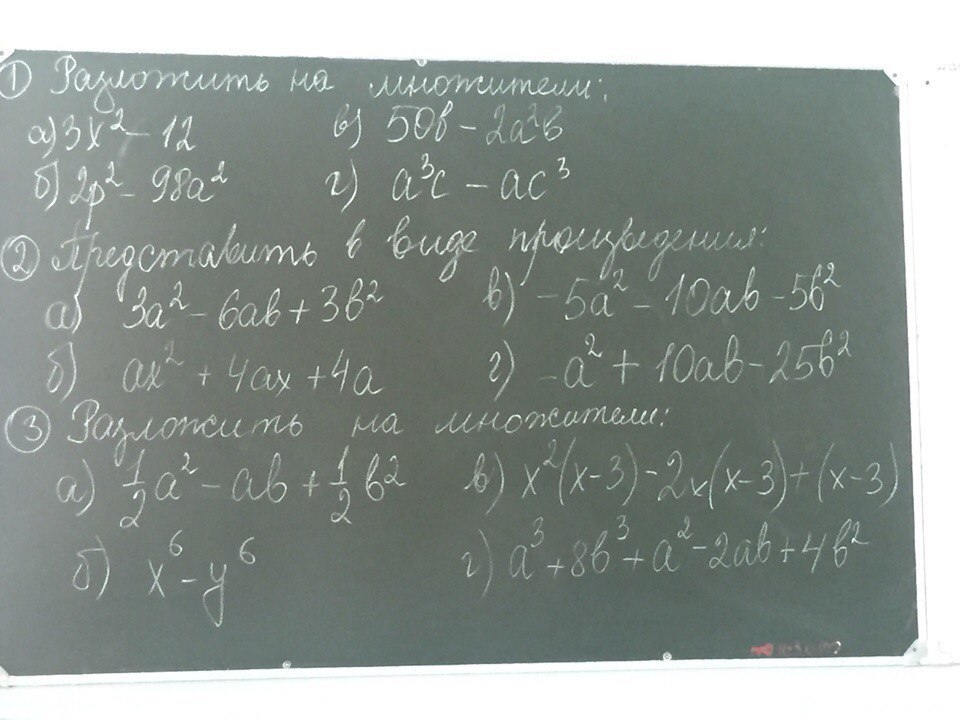 ① Разложить на множители:
а) 3x² - 12 в) 50b - 2a²b
б) 2p² - 98a² г) a³c - ac³
② Представить в виде произведения:
а) 3a² - 6ab + 3b² в) -5a² - 10ab - 5b²
б) ax² + 4ax + 4a г) -a² + 10ab - 25b²
③ Разложить на множители:
а) 1/2 a² - ab + 1/2 b² в) x²(x-3) - 2x(x-3) + (x-3)
б) x⁶ - y⁶ г) a³ + 8b³ + a² - 2ab + 4b²